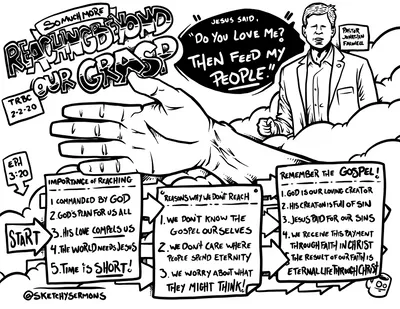 SO MUCH MORE
REACHING BEYOND
OUR GRASP
TRBC
2-2-20
JESUS SAID,
"DO YOU LOVE ME?
THEN FEED MY
PEOPLE."
PASTOR
JONATHAN
FALWELL
EPH
3:20
START
IMPORTANCE OF REACHING
1 COMMANDED BY GOD
2. GOD'S PLAN FOR US ALL
3. HIS LOVE COMPELS US
4. THE WORLD NEEDS JESUS
5. TIME IS SHORT!
REASONS WHY WE DON'T REACH
1. WE DON'T KNOW THE
GOSPEL OURSELVES
2. WE DON'T CARE WHERE
PEOPLE SPEND ETERNITY
3. WE WORRY ABOUT WHAT
THEY MIGHT THINK!
REMEMBER THE GOSPEL!
1. GOD IS OUR LOVING CREATOR
2. HIS CREATION IS FULL OF SIN
3. JESUS PAID FOR OUR SINS
4. WE RECEIVE THIS PAYMENT
THROUGH FAITH IN CHRIST
THE RESULT OF OUR FAITH IS
ETERNAL LIFE THROUGH CHRIST
@SKETCHYSERMONS